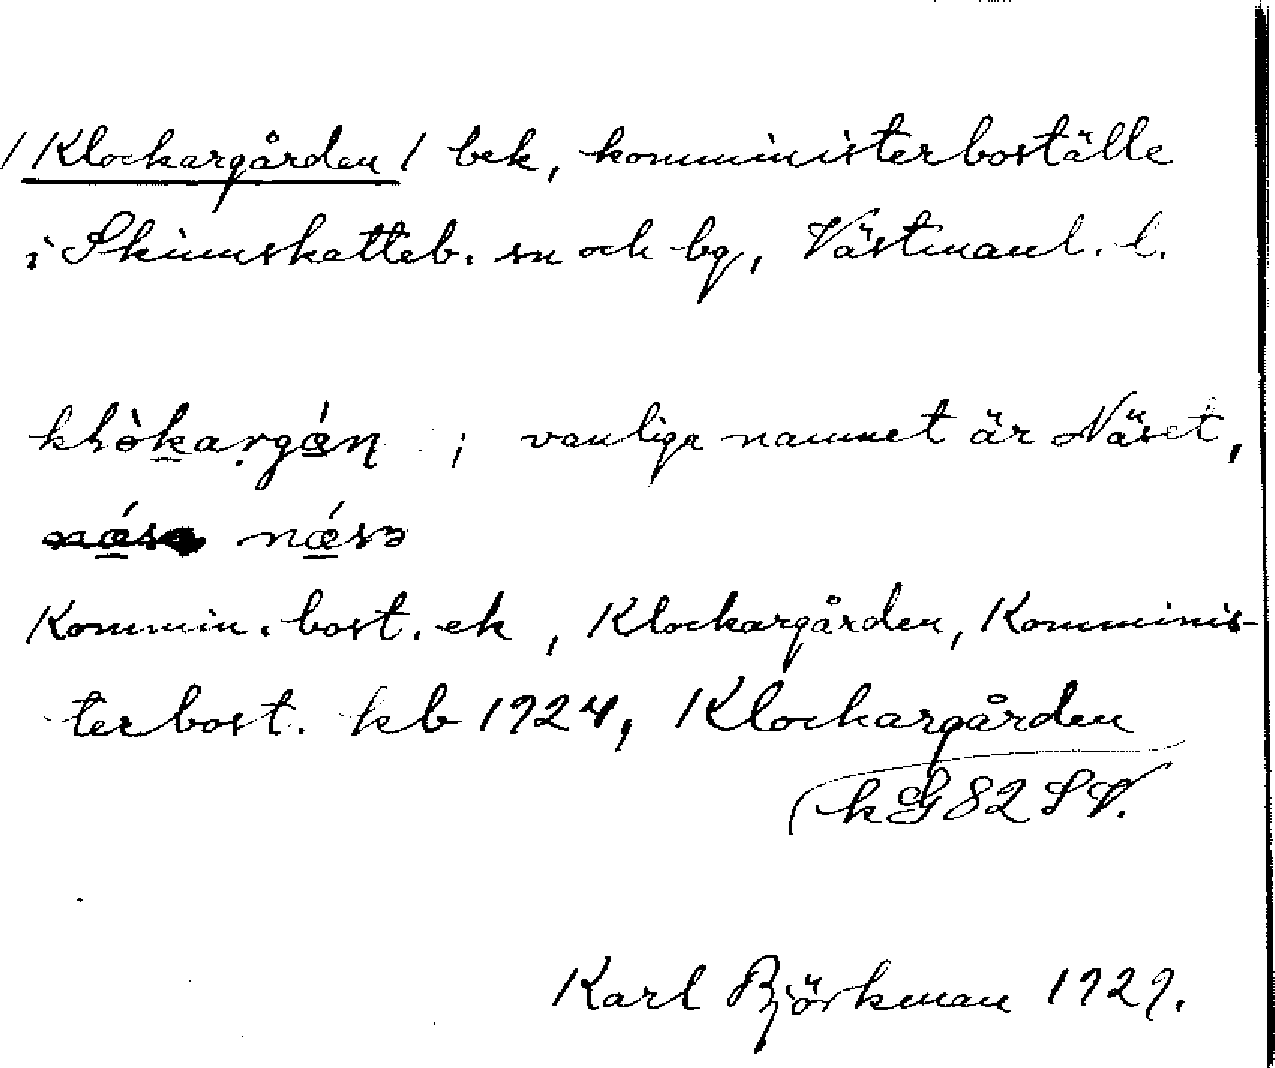 / Klockargården / bek, komministerboställe
i Skinnskatteb. sn och bg, Västmanl. l.
klòkargán ; vanliga namnet är Näset,
næ´sə
Kommin. bost. ek, Klockargården, Komminis-
terbost. kb 1924, Klockargården
k G 82 SV.
Karl Björkman 1929.